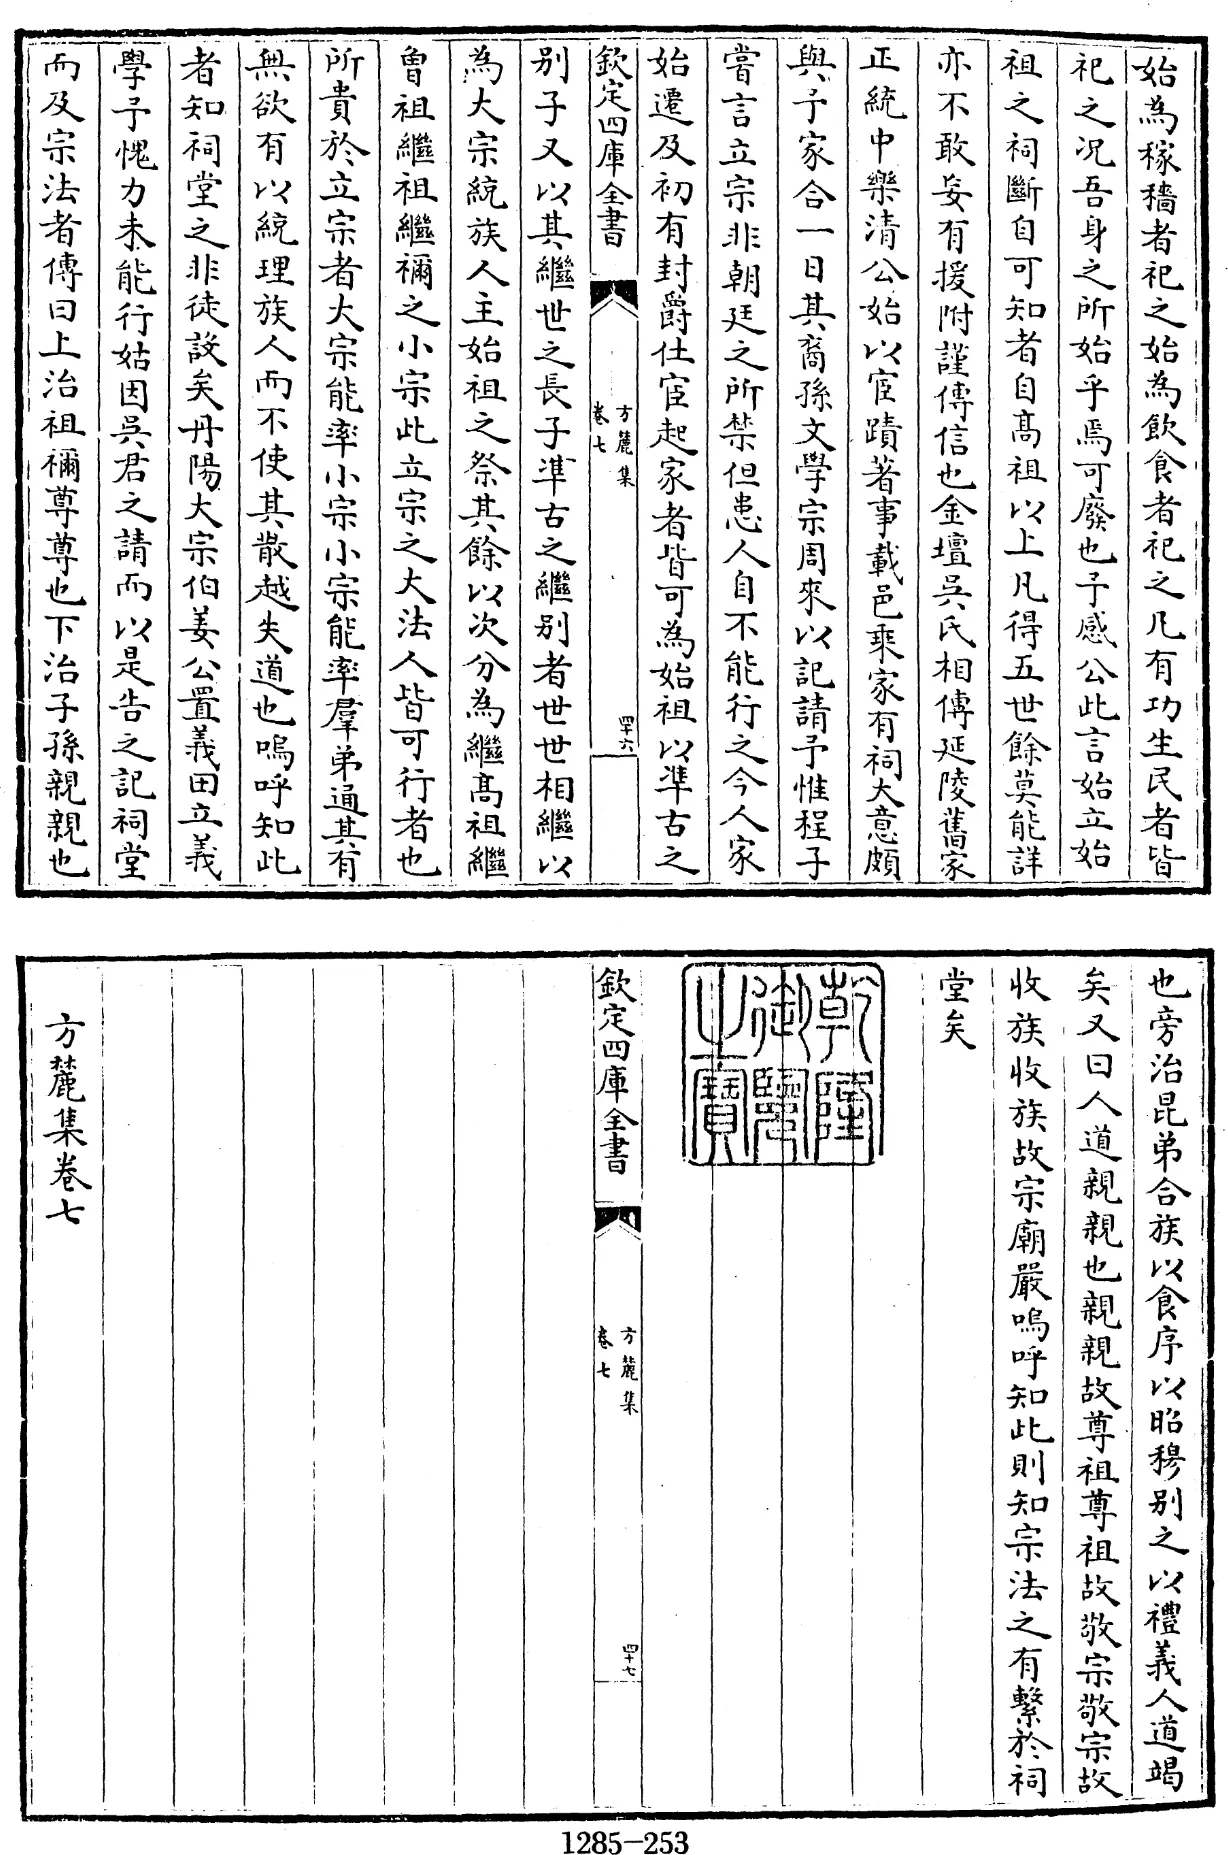 始為稼穡者祀之始為飲食者祀之凡有功生民者皆
祀之况吾身之所始乎焉可廢也予感公此言始立始
祖之祠斷自可知者自髙祖以上凡得五世餘莫能詳
亦不敢妄有援附謹傳信也金壇吳氏相傳延陵舊家
正統中樂清公始以宦蹟著事載邑乗家有祠大意頗
與予家合一日其裔孫文學宗周來以記請予惟程子
嘗言立宗非朝廷之所禁但患人自不能行之今人家
始遷及初有封爵仕宦起家者皆可為始祖以凖古之
欽定四庫全書
方麓集
卷七
四十六
别子又以其繼世之長子凖古之繼别者世世相繼以
為大宗統族人主始祖之祭其餘以次分為繼髙祖繼
曾祖繼祖繼禰之小宗此立宗之大法人皆可行者也
所貴於立宗者大宗能率小宗小宗能率羣弟通其有
無欲有以統理族人而不使其散越失道也嗚呼知此
者知祠堂之非徒設矣丹陽大宗伯姜公置義田立義
學予愧力未能行姑因吳君之請而以是告之記祠堂
而及宗法者傳曰上治祖禰尊尊也下治子孫親親也
也旁治昆弟合族以食序以昭穆别之以禮義人道竭
矣又曰人道親親也親親故尊祖尊祖故敬宗敬宗故
收族收族故宗廟嚴嗚呼知此則知宗法之有繫於祠
堂矣
乾隆
御覽
之寶
欽定四庫全書
方麓集
卷七
四十七
方麓集卷七
1285-253